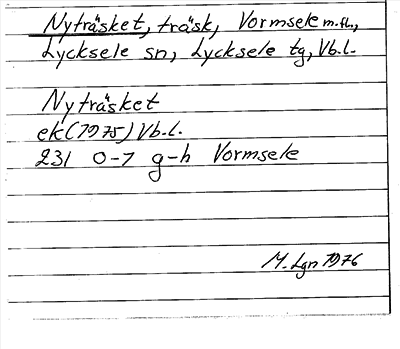 Nyträsket, träsk, Vormsele m.fl.,
Lycksele sn, Lycksele tg, Vb.l.
Nyträsket
ek (1975) Vb.l.
231 0-1 g-h Vormsele
M. Lgn 1976